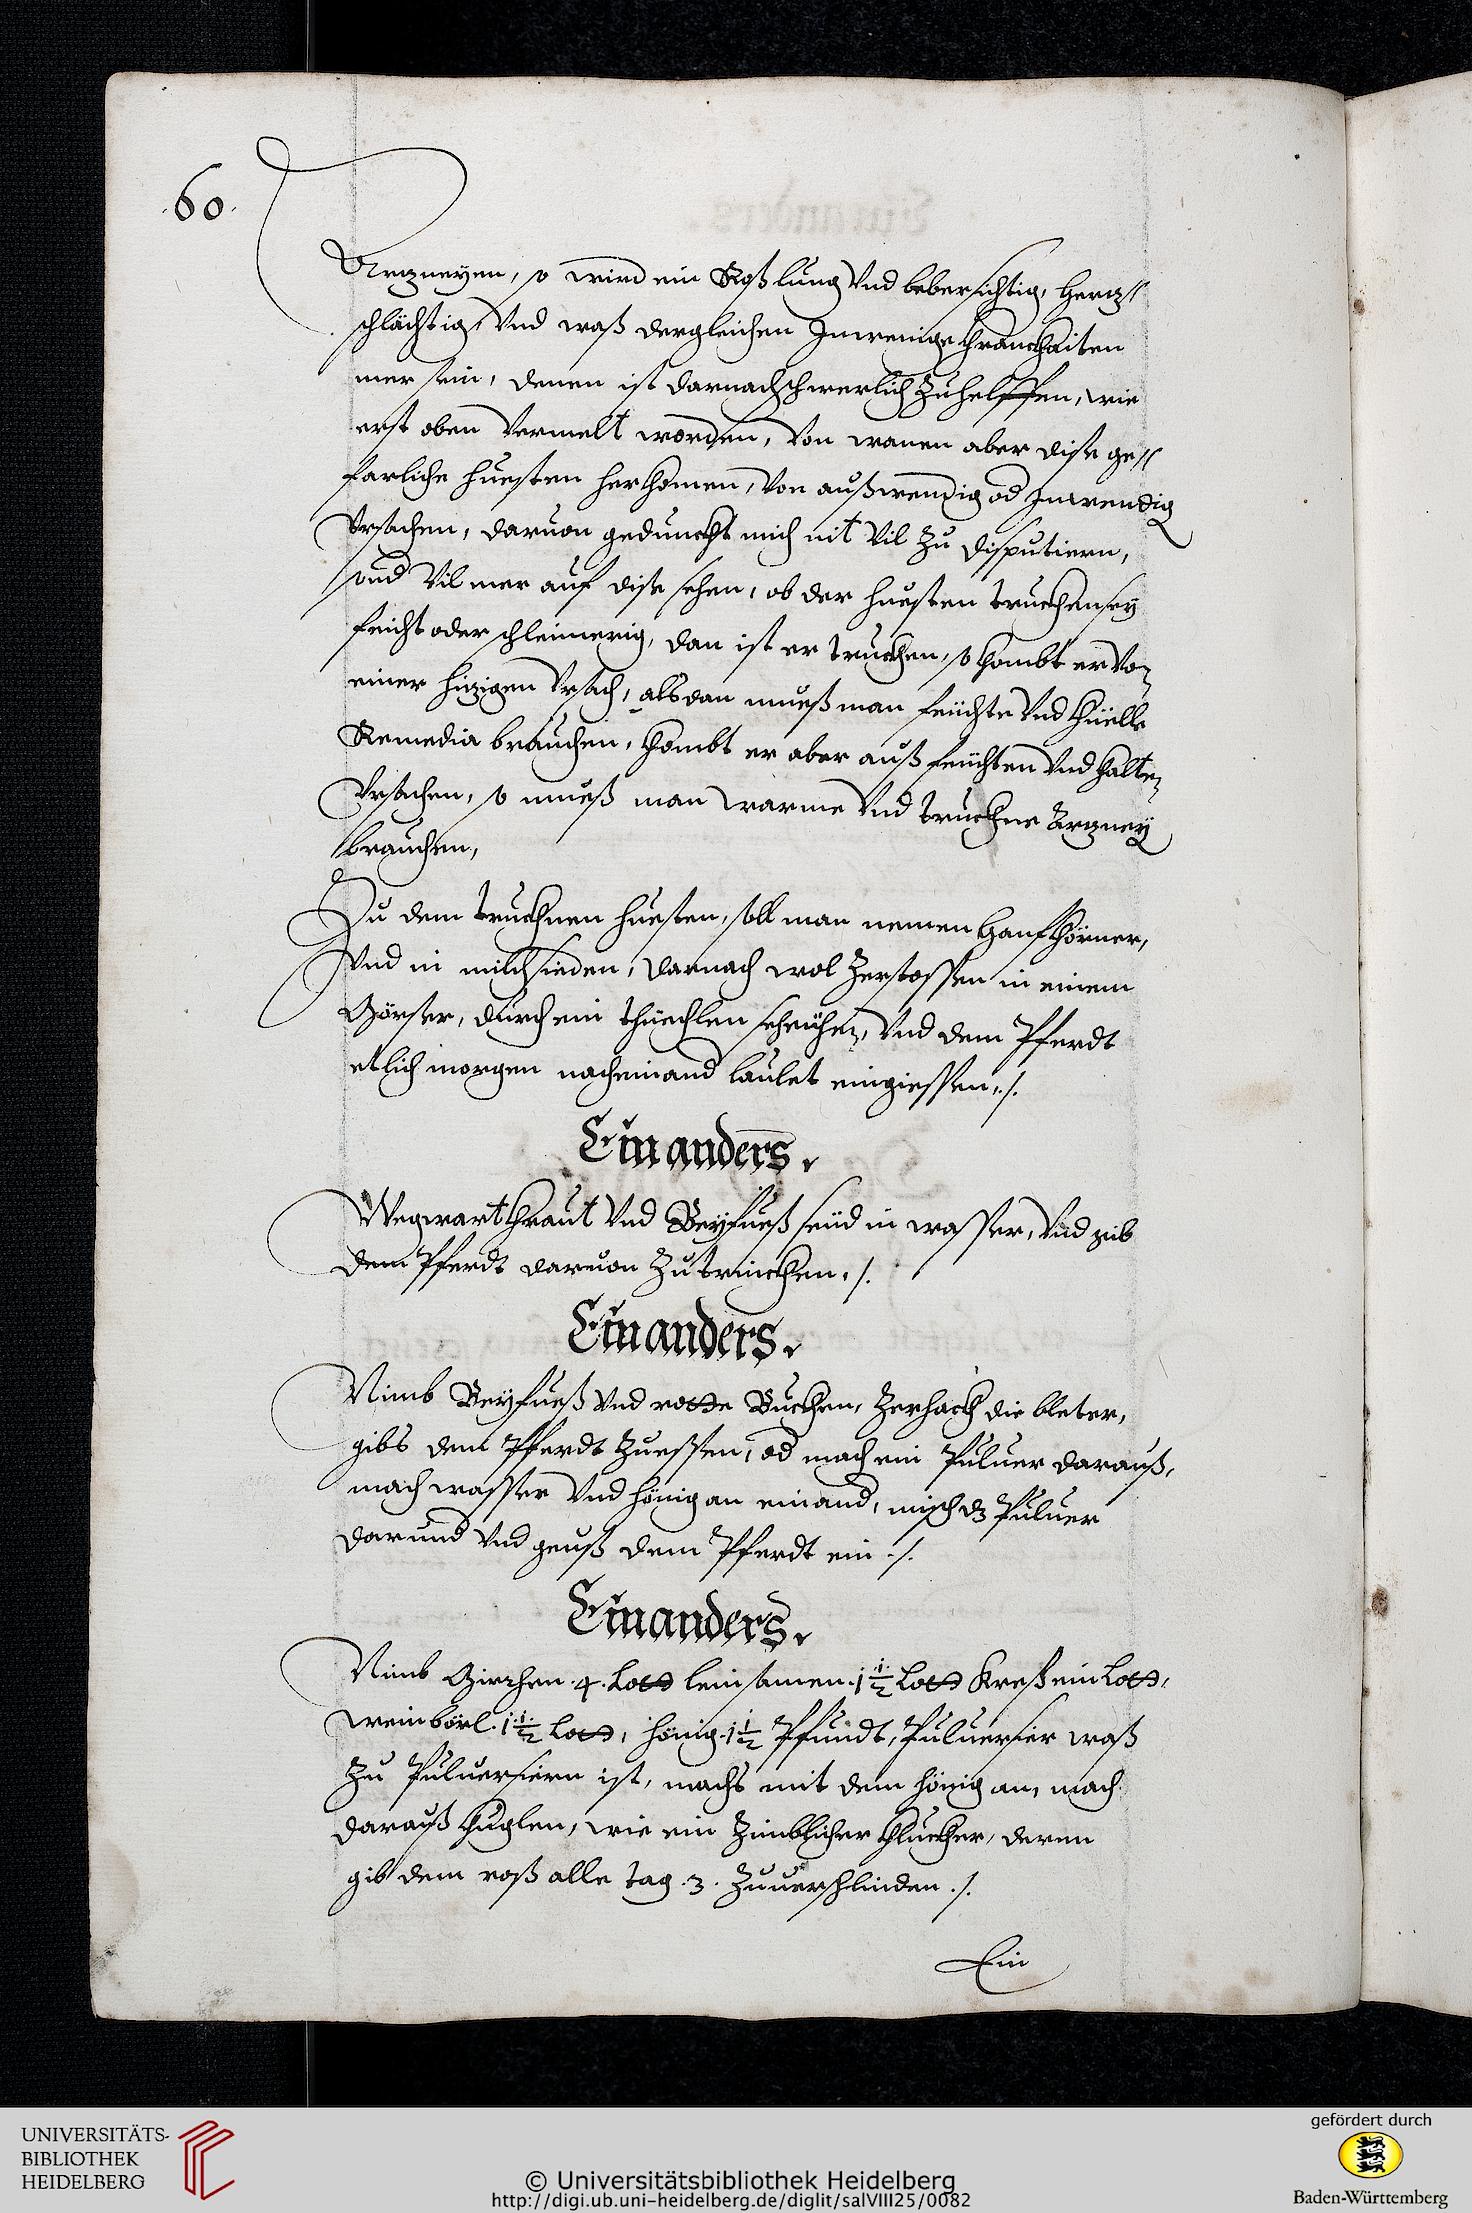 .60.
Arzneyen, so wird ein Roß lung Vnd lebersichtig, herz//
schlächtig, Vnd waß dergleichen Inwenige khranckhaiten
mer sein, denen ist darnach schwerlich Zuhelffen, wie
erst oben Vermelt worden, Von wanen aber dise ge//
farliche huesten herkhomen, Von außwendig od Inwendig
Vrsachen, daruon gedunckht mich nit Vil Zu disputiern,
sond Vil mer auf dise sehen, ob der huesten truckhen sey
feicht oder schleimerig, dan ist er truckhen, so khombt er Von
einer hizigen Vrsach, alsdan mueß man feüchte Vnd khüelle
Remedia brauchen, khombt er aber auß feüchten Vnd khalten
Vrsachen, so mueß man warme Vnd truckhne Arzney
brauchen,
Zu dem truckhnen huesten, soll man nemen Hanfkhörner,
Vnd in milch sieden, darnach wol Zerstossen in einem
Mörser, durch ein thüechlen seichen, Vnd dem Pferdt
etlich morgen nacheinand laulet eingiessen ./.
Ein anders.
Wegwart khraut Vnd Beyfueß seüd in wasser, Vnd gib
dem Pferdt daruon Zutrinckhen ./.
Ein anders.
Nimb Beyfueß Vnd rotte Buckhen, Zerhackh die bleter,
gibs dem Pferdt Zuessen, od mach ein Puluer darauß,
mach wasser Vnd hönig an einand, misch dz Puluer
darund Vnd geuß dem Pferdt ein ./.
Ein anders.
Nimb .4. Loth leinsamen .1 1/2 Loth Kreß ein Loth,
weinbörl .1 1/2 Loth, hönig .1 1/2 Pfundt, Puluersier waß
Zu Puluersiern ist, machs mit dem hönig an, mach
darauß khuglen, wie ein Zimblicher khluckher, deren
gib dem roß alle tag .3. Zuuerschlinden ./.
Ein
UNIVERSITÄTS-
BIBLIOTHEK
HEIDELBERG
© Universitätsbibliothek Heidelberg
http://digi.ub.uni-heidelberg.de/diglit/salVIII25/0082
gefördert durch
Baden-Württemberg